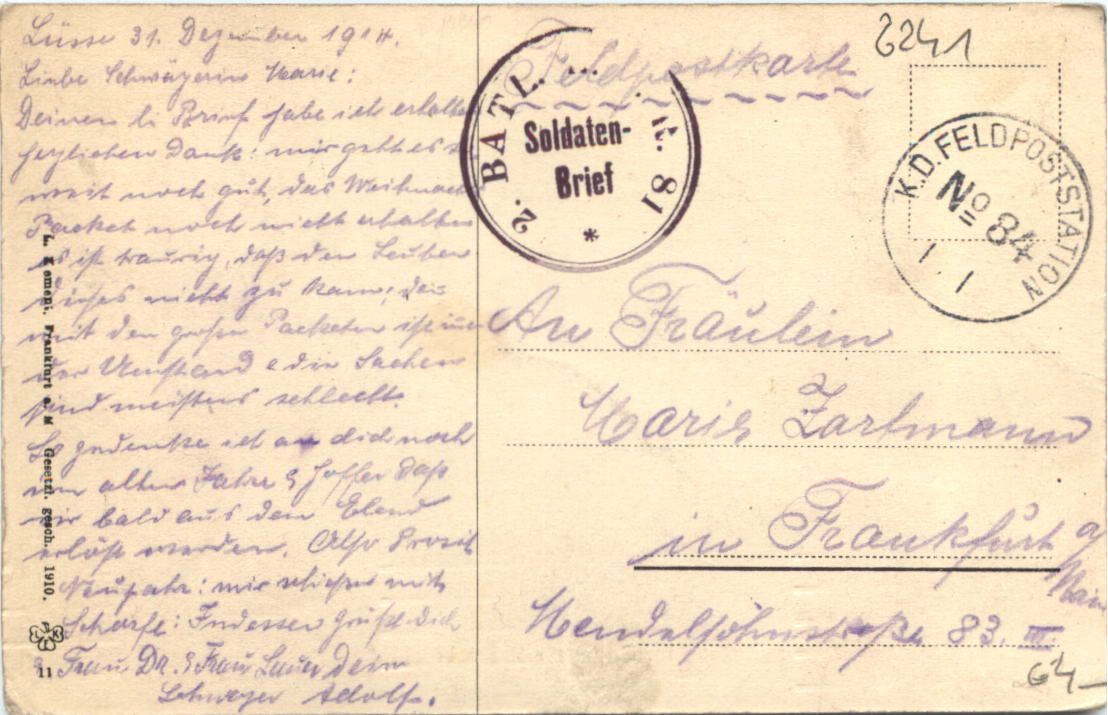 Lüsse 31. Dezember 1914.
Liebe Schwägerin Marie:
Deinen li Brief habe ich erhalten
herzlichen Dank: mir geht es so
weit noch gut, das Weihnachts
Packet noch nicht erhalten
es ist traurig, daß den Leuten
dieses nicht zu kam,
mit den großen Packeten ist immer
der Umstand & die Sachen
sind meistens schlecht.
So gedenke ich an dich noch
im alten Jahre & hoffe daß
wir bald aus dem Elend
erlöst werden. Also Prosit
Neujahr: wir schießen mit
Schärfe: Indessen grüßt dich
& Frau Dr. & Frau Lauer dein
Schwager Adolf.
L. Klement, Frankfurt a. M Gesetzl. gesch. 1910.
LKF
11
Feldpostkarte
6241
2. BATL. ... R. 81
Soldaten-
Brief
*
K.D. FELDPOSTSTATION
No 84
1. 1
An Fräulein
Marie Zartmann
in Frankfurt a/
Main
Mendelsohnstraße 83. III.
64-